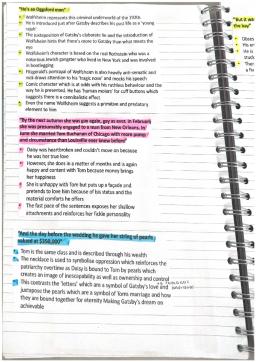 "He's an Oggsford man"
Wolfsheim represents this criminal underworld of the 1920s
He is introduced just after Gatsby describes his past life as a 'young rajah'
The juxtaposition of Gatsby's elaborate lie and the introduction of Wolfsheim hints that there's more to Gatsby than what meets the eye
Wolfsheim's character is based on the real Rothstein who was a notorious Jewish gangster who lived in New York and was involved in bootlegging
Fitzgerald's portrayal of Wolfsheim is also heavily anti-semitic and
Comic character which is at odds with his ruthless behaviour and the way he is presented. He has 'human molars' for cuff buttons which suggests there is a cannibalistic effect
Even the name Wolfsheim suggests a primitive and predatory element to him
"By the next autumn she was gay again, gay as ever. In February she was presumably engaged to a man from New Orleans. In June she married Tom Buchanan of Chicago with more pomp and circumstance than Louisville ever knew before"
Daisy was heartbroken and couldn't move on because he was her true love
However, she does in a matter of months and is again happy and content with Tom because money brings her happiness
She is unhappy with Tom but puts up a façade and pretends to love him because of his status and the material comforts he offers
The fast pace of the sentences exposes her shallow attachments and reinforces her fickle personality
"And the day before the wedding he gave her string of pearls valued at $350,000"
Tom is the same class and is described through his wealth
The necklace is used to symbolise oppression which reinforces the patriarchy overtime as Daisy is bound to Tom by pearls which creates an image of inescapability as well as ownership and control
This contrasts the 'letters' which are a symbol of Gatsby's love and juxtapose the pearls which are a symbol of Toms marriage and how they are bound together for eternity Making Gatsby's dream on achievable